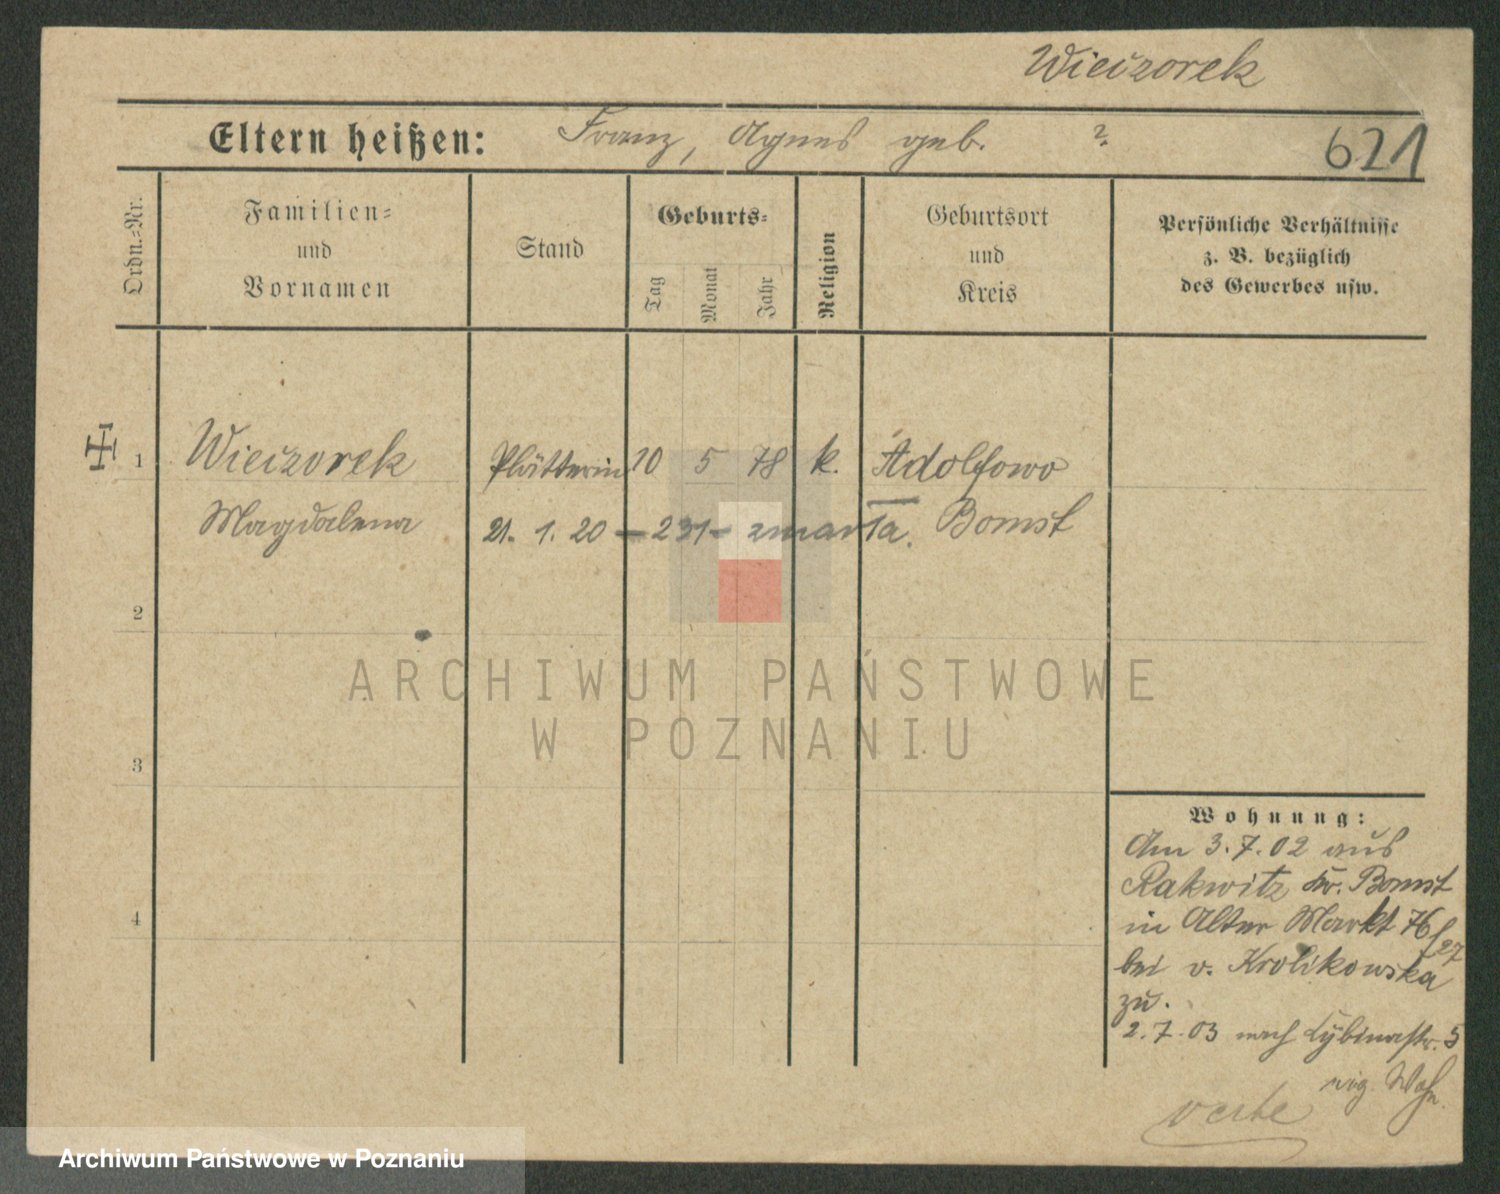 Wieczorek
Eltern heißen: Franz, Agnes geb. ?
621
Ordn.-Nr.
Familien-
und
Vornamen
Stand
Geburts-
Tag
Monat
Jahr
Religion
Geburtsort
und
Kreis
Persönliche Verhältnisse
z. B. bezüglich
des Gewerbes usw.
1 Wieczorek Plätterin 10 5 78 k. Adolfowo
Magdalena 21. 1. 20 – 231 – zmarła. Bomst
2
3
4
ARCHIWUM PAŃSTWOWE
W POZNANIU
Wohnung:
Am 3.7.02 aus
Rakwitz Kr. Bomst
in Alter Markt 76/27
bei v. Krolikowska
zu.
2.7.03 nach Cybinastr. 5
eig. Wohn.
verte
Archiwum Państwowe w Poznaniu